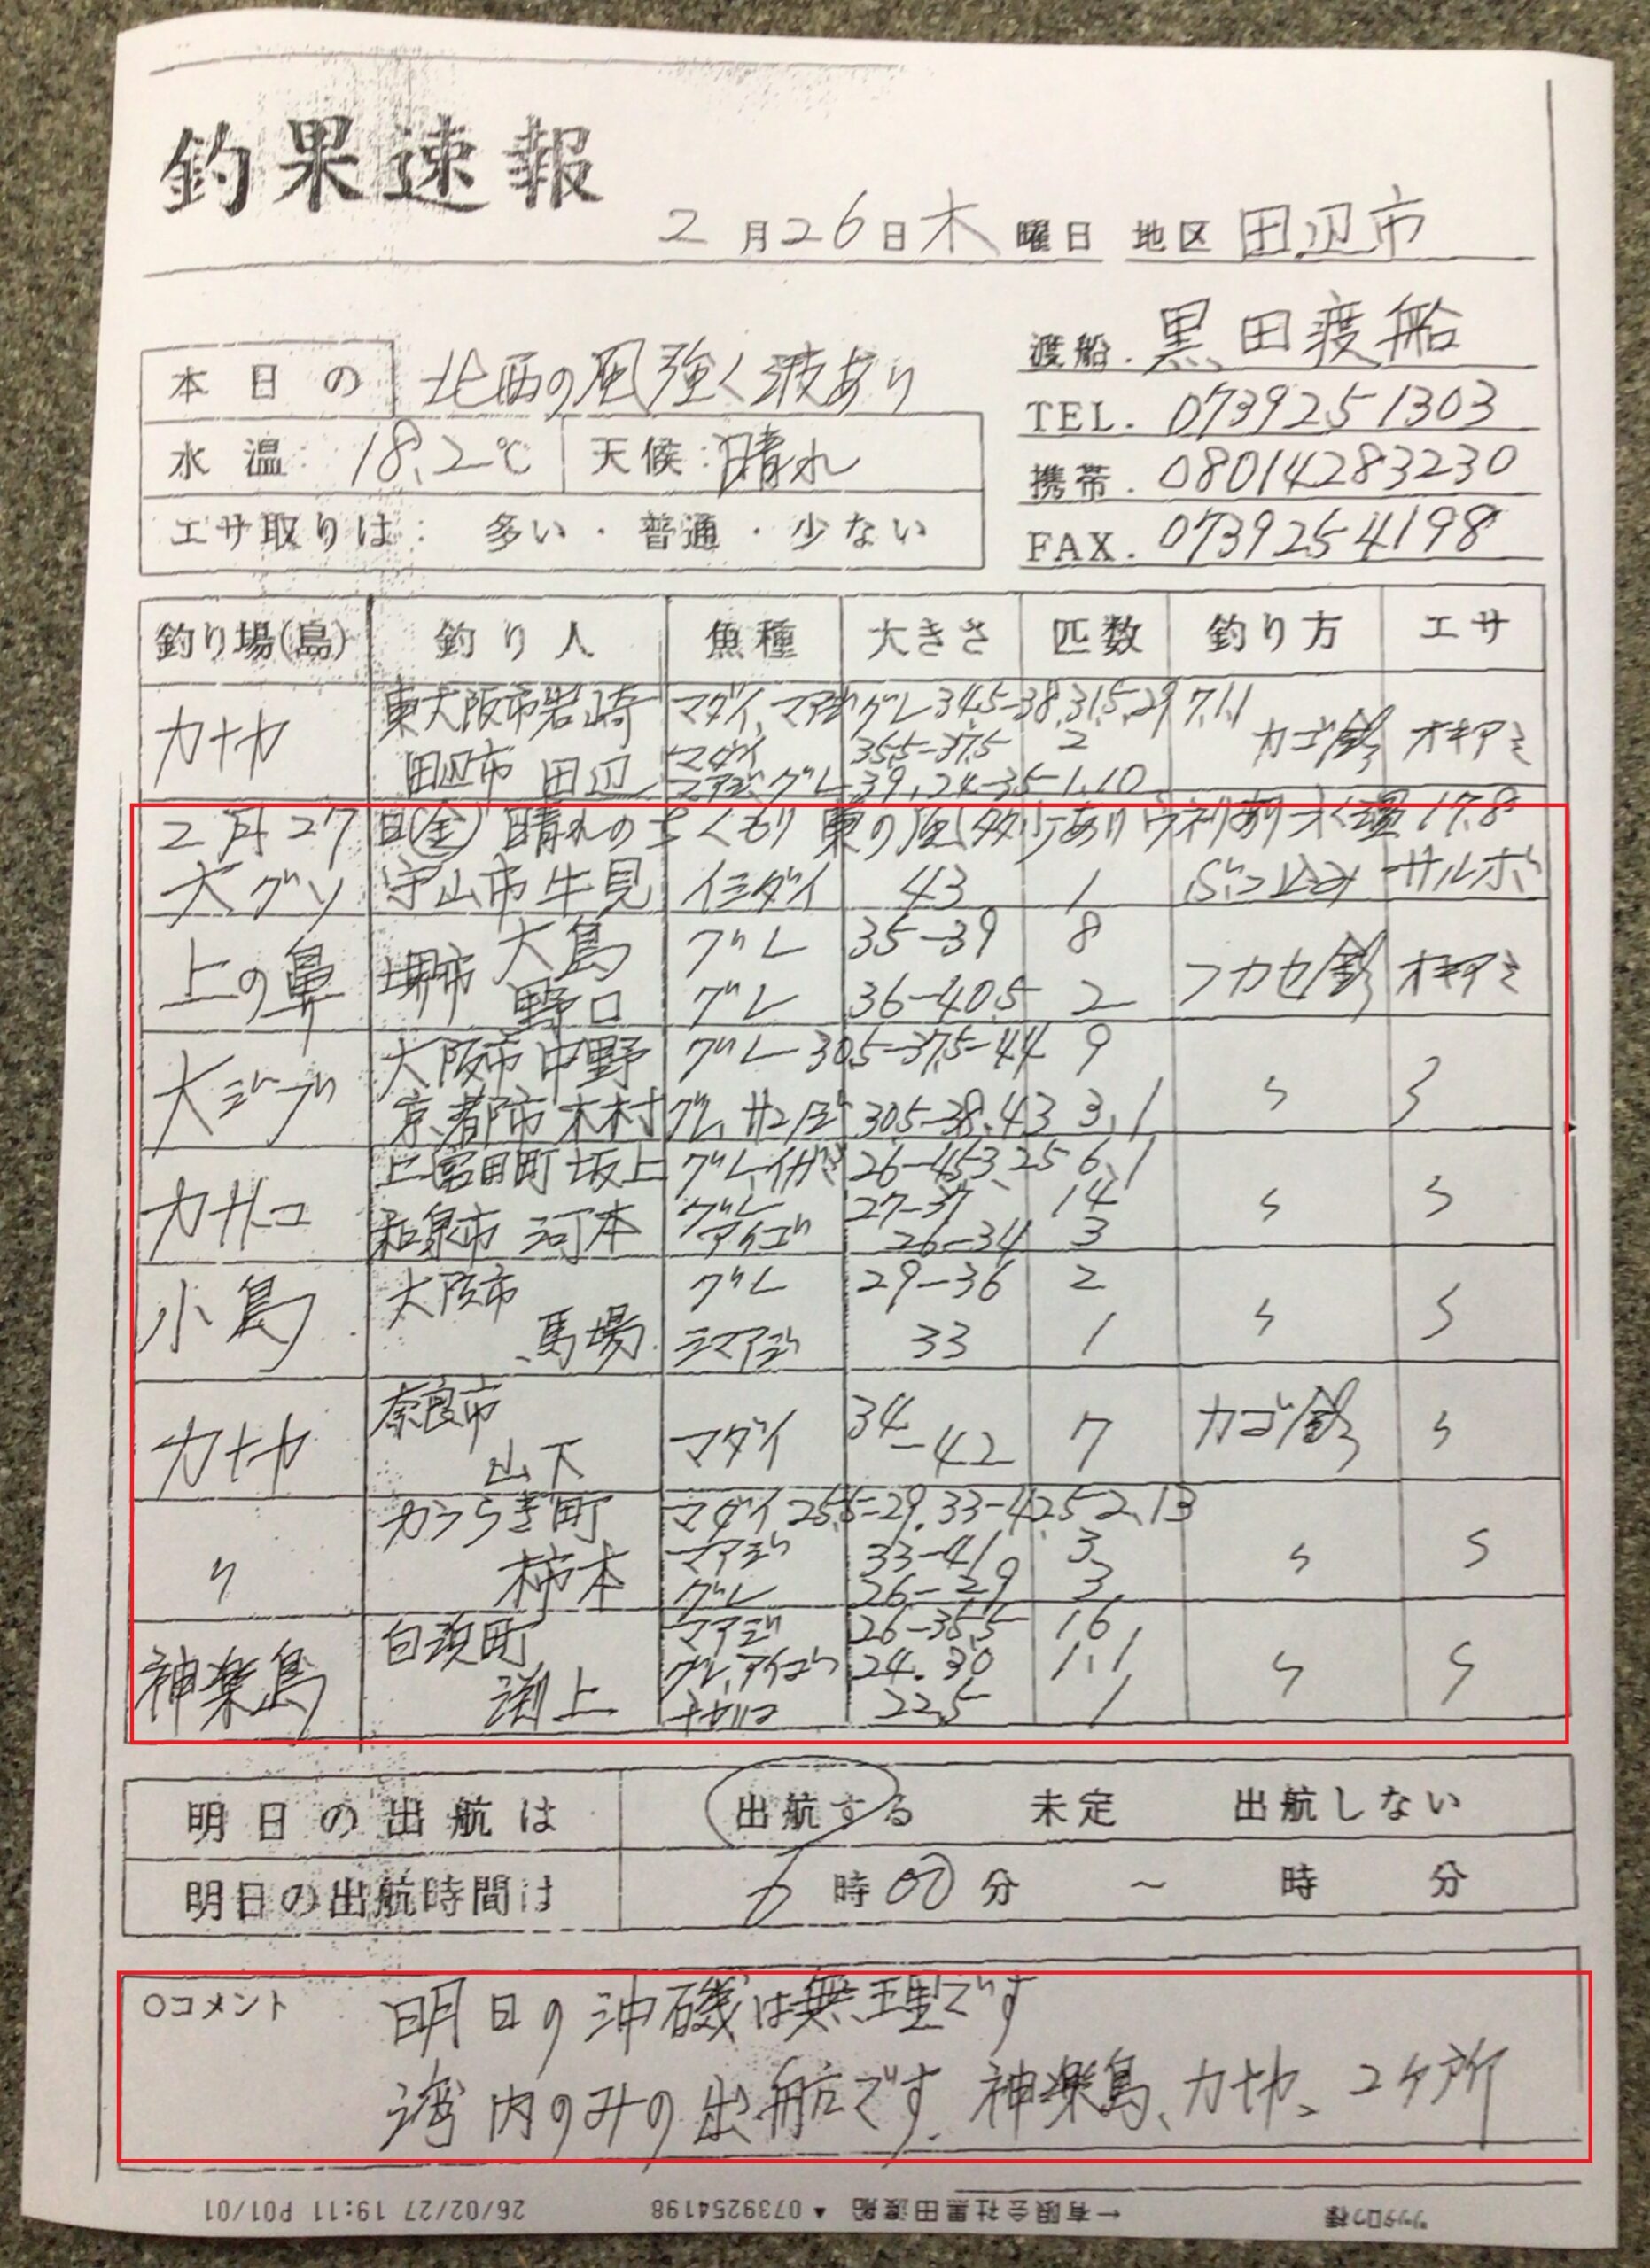 釣果速報
2月26日木曜日 地区 田辺市
渡船. 黒田渡船
本日の 北西の風強く波あり
TEL. 0739251303
水温: 18.2℃ 天候: 晴れ
携帯. 08014283230
エサ取りは: 多い・普通・少ない
FAX. 0739254198
釣り場(島) 釣り人 魚種 大きさ 匹数 釣り方 エサ
カナヤ 東大阪市岩崎 マダイ、マアジ、グレ 34.5-38,31.5,29 7,1,1 カゴ釣 オキアミ
田辺市 田辺 マダイ 35.5-37.5 2
マアジ、グレ 39,24-35 1,10
2月27日(金) 晴れのちくもり 東の風多少ありウネリあり水温17.8
大グソ 守山市牛見 イシダイ 43 1 ぶっ込み サルボ
上の鼻 堺市 大島 グレ 35-39 8 フカセ釣 オキアミ
野口 グレ 36-40.5 2
大ジブ 大阪市中野 グレ 30.5-37.5-44 9 〃 〃
京都市木村 グレ、サンノジ 30.5-38,43 3,1
カサコ 上富田町坂上 グレ、イガミ 26-45.3,25 6,1 〃 〃
和泉市 河本 グレ 27-37 14
アイゴ 26-34 3
小島 大阪市 グレ 29-36 2 〃 〃
馬場 シマアジ 33 1
カナヤ 奈良市 山下 マダイ 34-42 7 カゴ釣 〃
〃 かつらぎ町 マダイ 25.5-29,33-42.5 2,13 〃 〃
柿本 マアジ 33-41 3
グレ 26-29 3
神楽島 白浜町 マアジ 26-35.5 16 〃 〃
渕上 グレ、アイゴ 24.30 1,1
22.5 1
明日の出航は 出航する 未定 出航しない
明日の出航時間は 6時00分 ~ 時 分
○コメント 明日の沖磯は無理です
湾内のみの出船です. 神楽島、カナヤ、2ケ所
26/02/27 19:11 P01/01 0739254198 ▲ 有限会社黒田渡船←